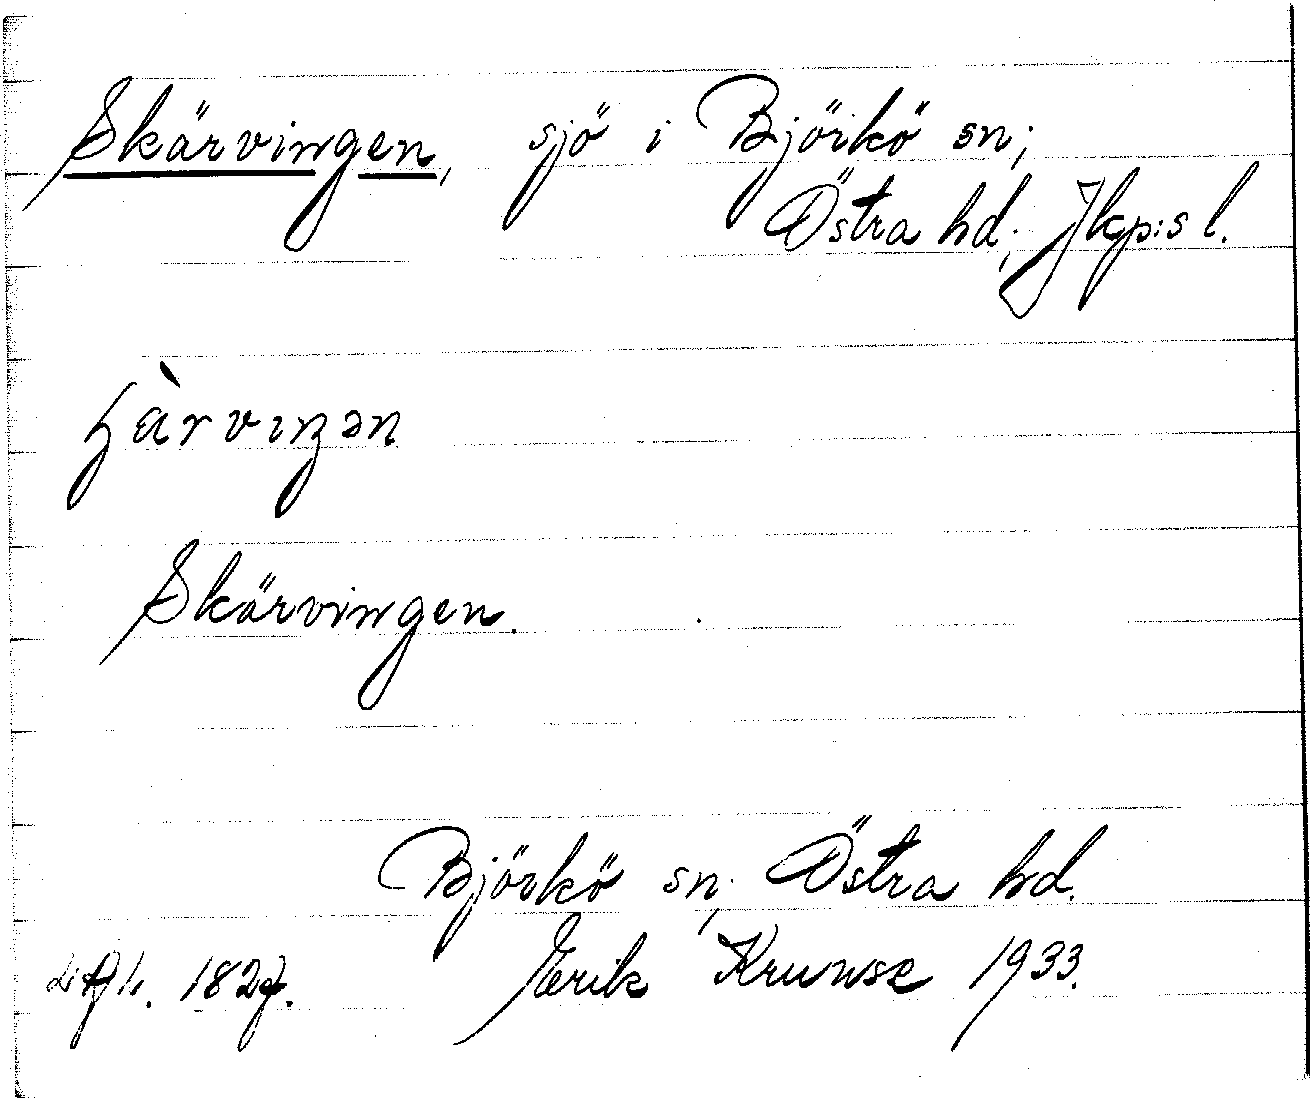 Skärvingen, sjö i Björkö sn;
Östra hd; Jkp:s l.
Skärvingen.
Björkö sn; Östra hd.
1827. Erik Kruuse 1933.